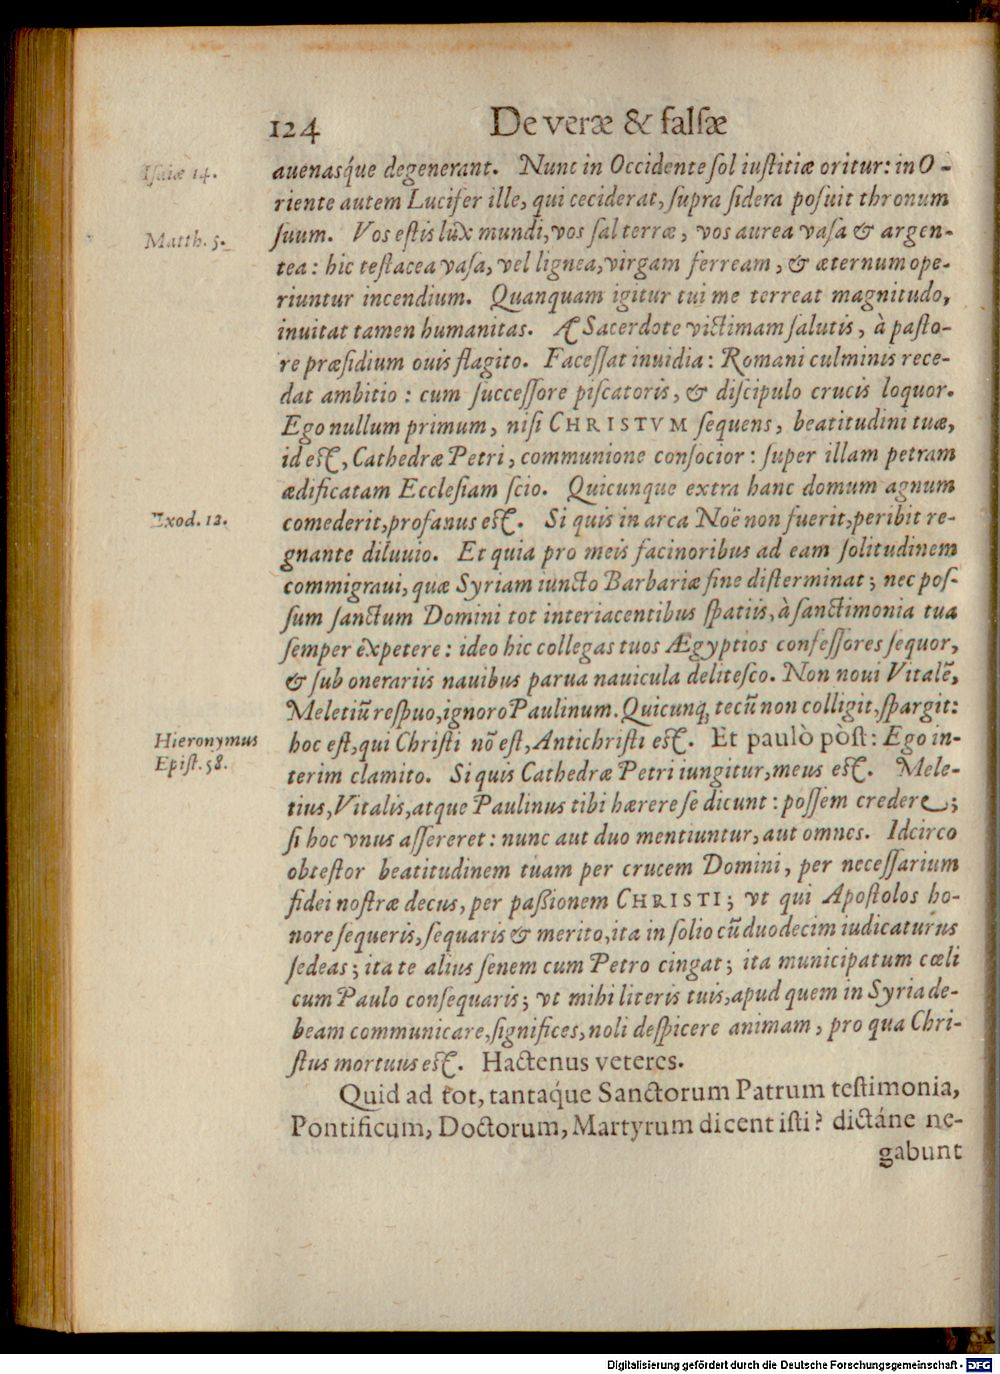 124 De veræ & falsæ
Isaiæ 14.
auenasq́ue degenerant. Nunc in Occidente sol iustitiæ oritur: in O-
riente autem Lucifer ille, qui ceciderat, supra sidera posuit thronum
Matth. 5.
suum. Vos estis lux mundi, vos sal terræ, vos aurea vasa & argen-
tea: hic testacea vasa, vel lignea, virgam ferream, & æternum ope-
riuntur incendium. Quanquam igitur tui me terreat magnitudo,
inuitat tamen humanitas. A Sacerdote victimam salutis, à pasto-
re præsidium ouis flagito. Facessat inuidia: Romani culminis rece-
dat ambitio: cum successore piscatoris, & discipulo crucis loquor.
Ego nullum primum, nisi CHRISTVM sequens, beatitudini tuæ,
id est, Cathedræ Petri, communione consocior: super illam petram
ædificatam Ecclesiam scio. Quicunque extra hanc domum agnum
Exod. 12.
comederit, profanus est. Si quis in arca Noë non fuerit, peribit re-
gnante diluuio. Et quia pro meis facinoribus ad eam solitudinem
commigraui, quæ Syriam iuncto Barbariæ fine disterminat; nec pos-
sum sanctum Domini tot interiacentibus spatiis, à sanctimonia tua
semper expetere: ideo hic collegas tuos Ægyptios confessores sequor,
& sub onerariis nauibus parua nauicula delitesco. Non noui Vitalē,
Meletiū respuo, ignoro Paulinum. Quicunq; tecū non colligit, spargit:
Hieronymus
Epist. 58.
hoc est, qui Christi nō est, Antichristi est. Et paulò pòst: Ego in-
terim clamito. Si quis Cathedræ Petri iungitur, meus est. Mele-
tius, Vitalis, atque Paulinus tibi hærere se dicunt: possem credere;
si hoc vnus assereret: nunc aut duo mentiuntur, aut omnes. Idcirco
obtestor beatitudinem tuam per crucem Domini, per necessarium
fidei nostræ decus, per paßionem CHRISTI; vt qui Apostolos ho-
nore sequeris, sequaris & merito, ita in solio cū duodecim iudicaturus
sedeas; ita te alius senem cum Petro cingat; ita municipatum cœli
cum Paulo consequaris; vt mihi literis tuis, apud quem in Syria de-
beam communicare, significes, noli despicere animam, pro qua Chri-
stus mortuus est. Hactenus veteres.
Quid ad tot, tantaq́ue Sanctorum Patrum testimonia,
Pontificum, Doctorum, Martyrum dicent isti? dictáne ne-
gabunt
Digitalisierung gefördert durch die Deutsche Forschungsgemeinschaft - DFG